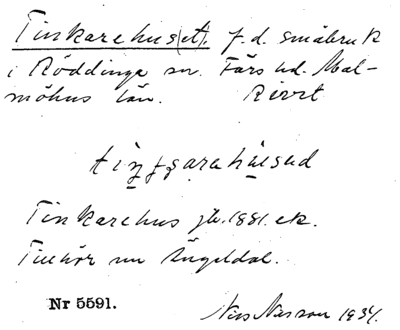 Tinkarehus(et). f.d. småbruk
i Röddinge sn. Färs hd. Mal-
möhus län. Rivet
Tinkarehus jb. 1881. ek.
Tillhör nu Ängeldal.
Nr 5591.
Nils Nilsson 1934.